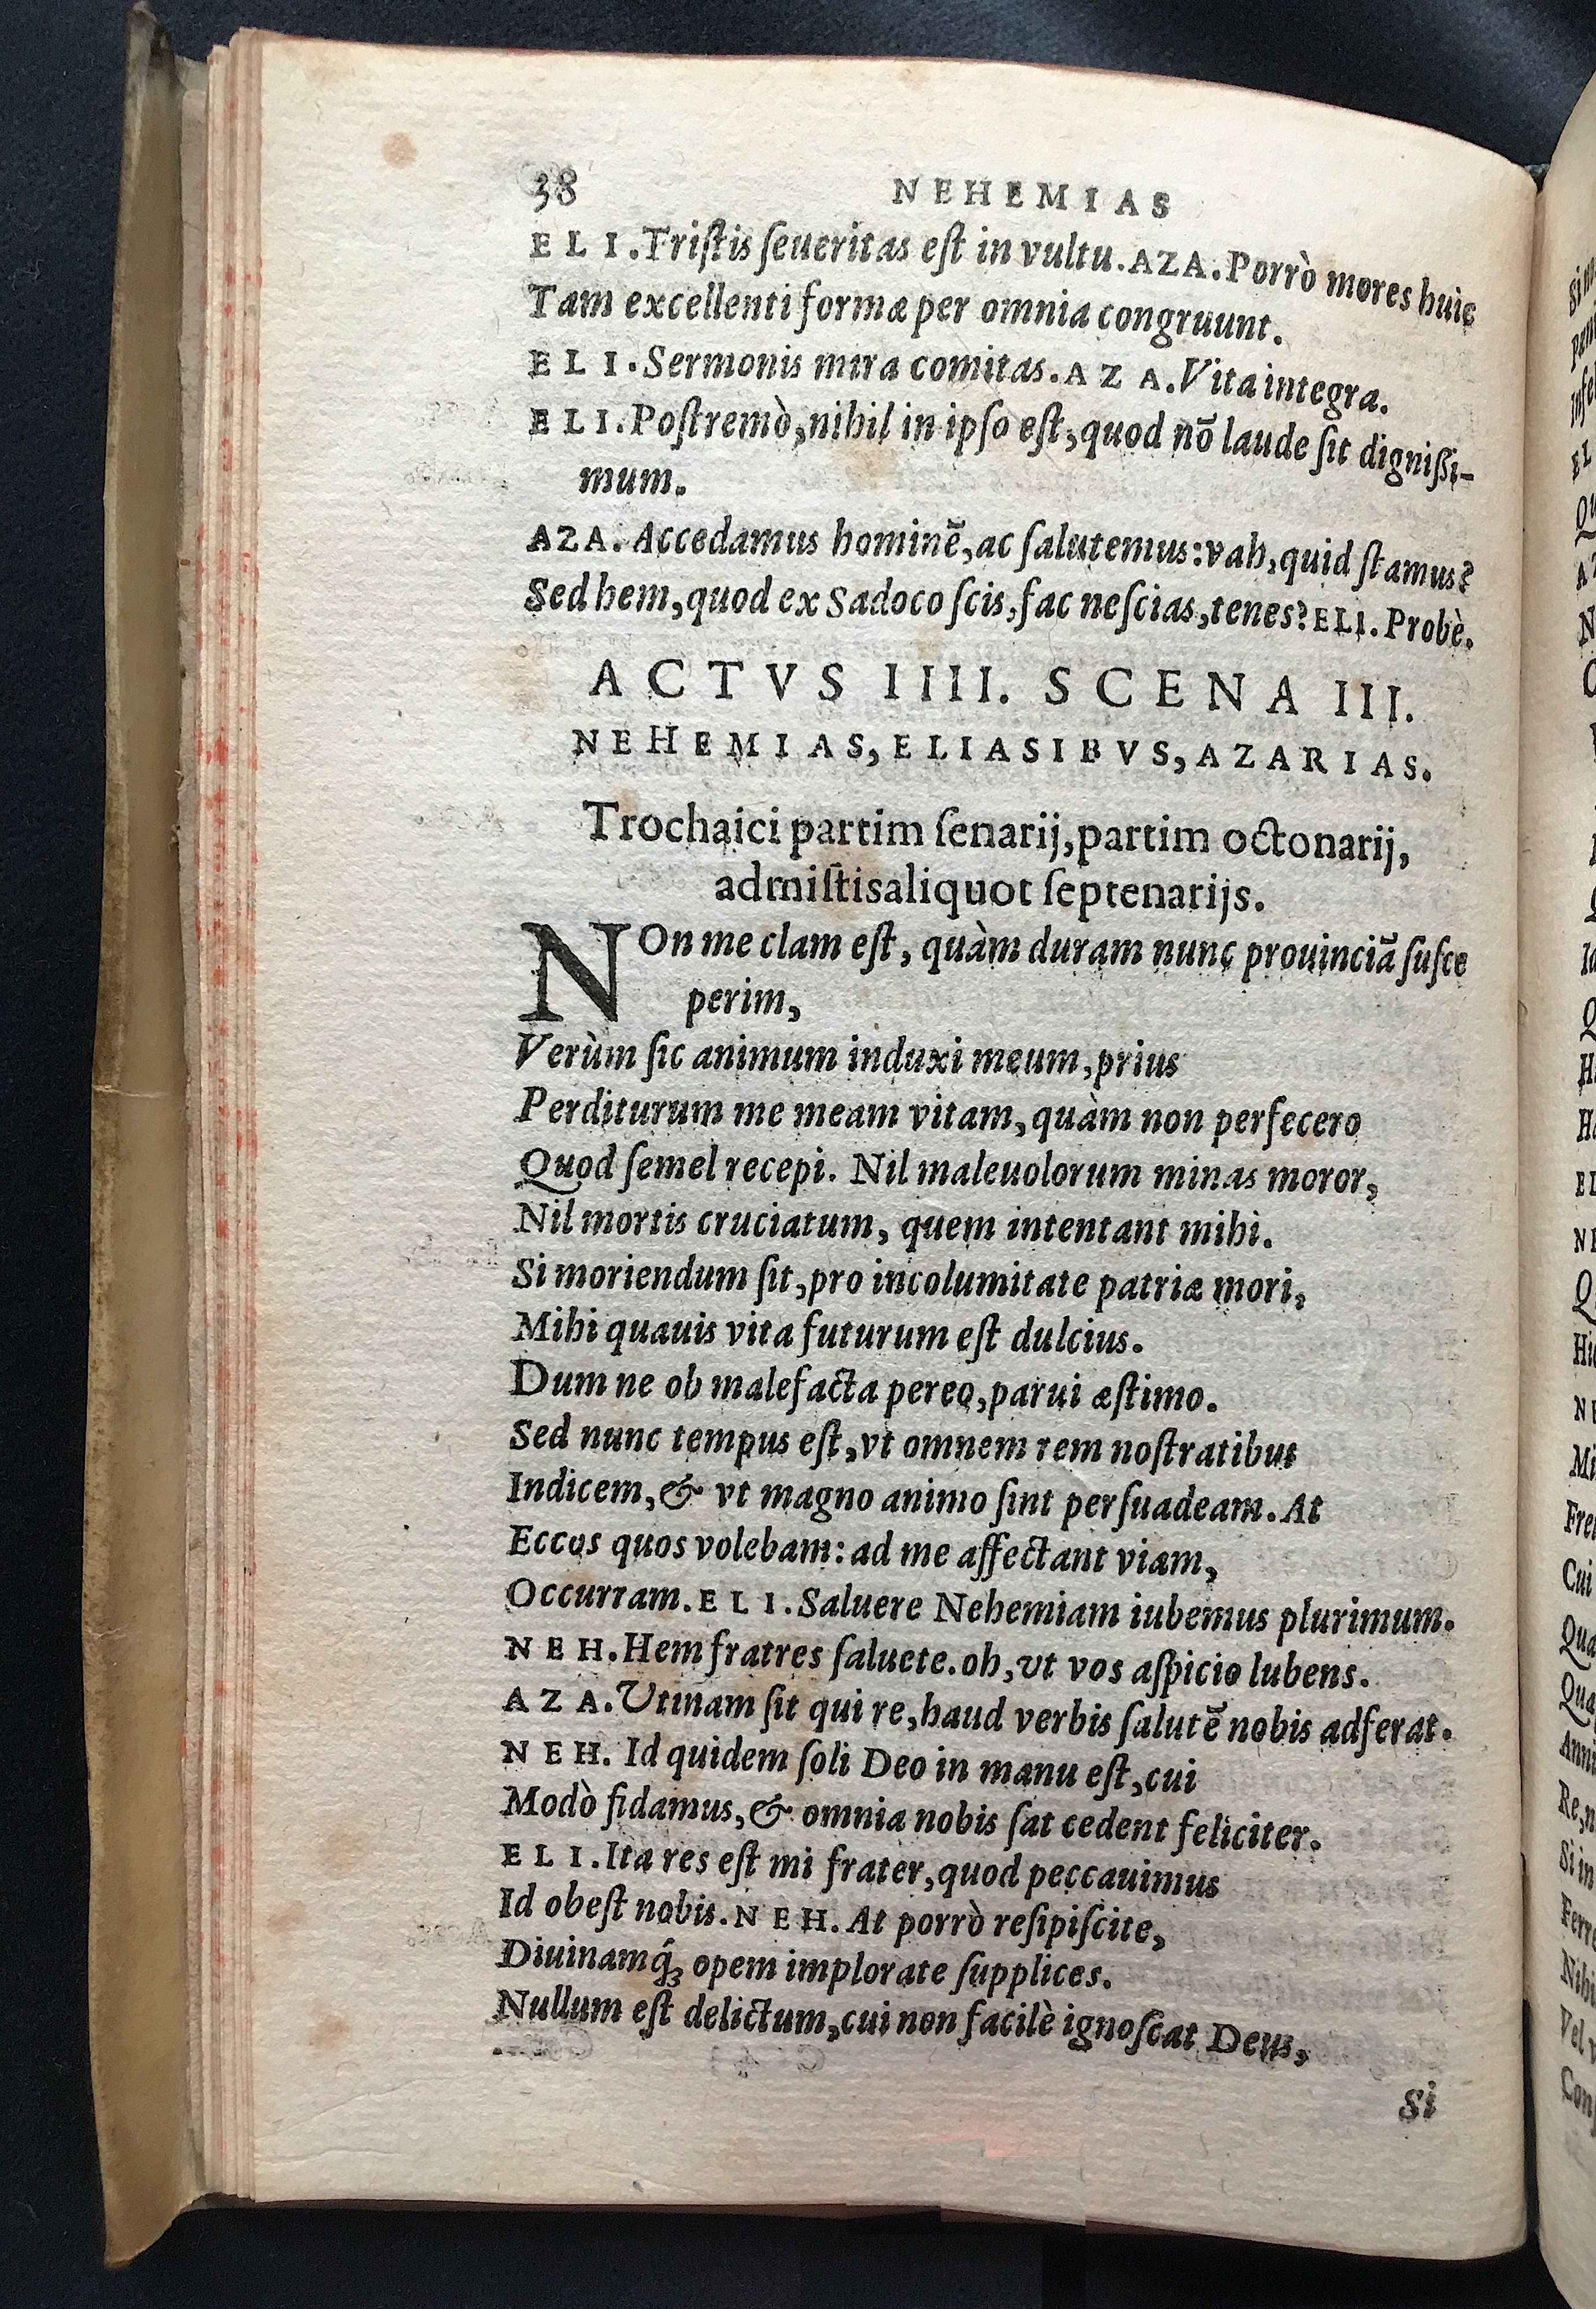 38 NEHEMIAS
ELI. Triſtis ſeueritas eſt in vultu. AZA. Porrò mores huic
Tam excellenti formæ per omnia congruunt.
ELI. Sermonis mira comitas. AZA. Vita integra.
ELI. Poſtremò, nihil in ipſo eſt, quod nō laude ſit digniſſi-
mum.
AZA. Accedamus hominē, ac ſalutemus: vah, quid ſtamus?
Sed hem, quod ex Sadoco ſcis, fac neſcias, tenes? ELI. Probè.
ACTVS IIII. SCENA III.
NEHEMIAS, ELIASIBVS, AZARIAS.
Trochaici partim ſenarij, partim octonarij,
admiſtis aliquot ſeptenarijs.
NOn me clam eſt, quàm duram nunc prouinciā ſuſce
perim,
Verùm ſic animum induxi meum, prius
Perditurum me meam vitam, quàm non perfecero
Quod ſemel recepi. Nil maleuolorum minas moror,
Nil mortis cruciatum, quem intentant mihi.
Si moriendum ſit, pro incolumitate patriæ mori,
Mihi quauis vita futurum eſt dulcius.
Dum ne ob malefacta pereo, parui æſtimo.
Sed nunc tempus eſt, vt omnem rem noſtratibus
Indicem, & vt magno animo ſint perſuadeam. At
Eccos quos volebam: ad me affectant viam,
Occurram. ELI. Saluere Nehemiam iubemus plurimum.
NEH. Hem fratres ſaluete. oh, vt vos aſpicio lubens.
AZA. Utinam ſit qui re, haud verbis ſalutē nobis adferat.
NEH. Id quidem ſoli Deo in manu eſt, cui
Modò fidamus, & omnia nobis ſat cedent feliciter.
ELI. Ita res eſt mi frater, quod peccauimus
Id obeſt nobis. NEH. At porrò reſipiſcite,
Diuinamq́ꝫ opem implorate ſupplices.
Nullum eſt delictum, cui non facilè ignoſcat Deus,
Si